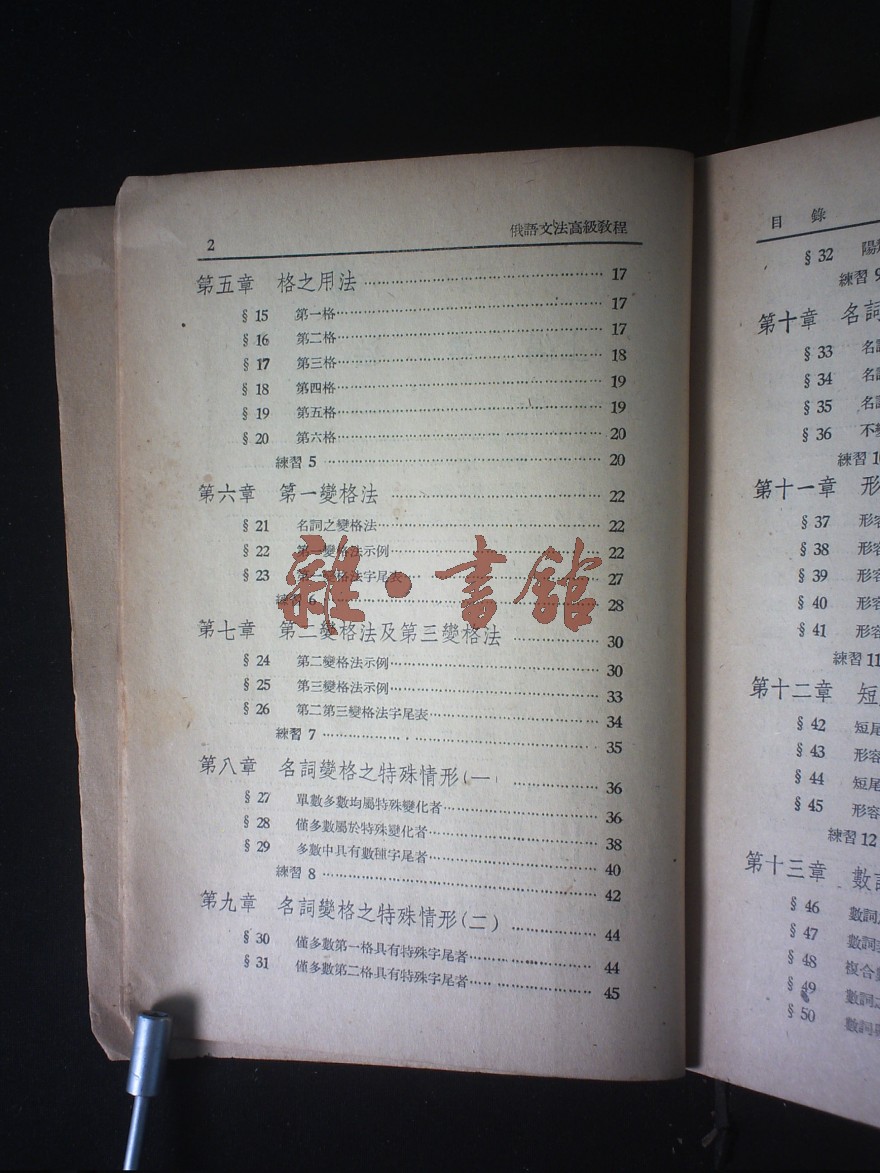 2 俄語文法高級教程
第五章 格之用法 17
§ 15 第一格 17
§ 16 第二格 17
§ 17 第三格 18
§ 18 第四格 19
§ 19 第五格 19
§ 20 第六格 20
練習 5 20
第六章 第一變格法 22
§ 21 名詞之變格法 22
§ 22 第一變格法示例 22
§ 23 第一變格法字尾表 27
練習 6 28
第七章 第二變格法及第三變格法 30
§ 24 第二變格法示例 30
§ 25 第三變格法示例 33
§ 26 第二第三變格法字尾表 34
練習 7 35
第八章 名詞變格之特殊情形(一) 36
§ 27 單數多數均屬特殊變化者 36
§ 28 僅多數屬於特殊變化者 38
§ 29 多數中具有數種字尾者 40
練習 8 42
第九章 名詞變格之特殊情形(二) 44
§ 30 僅多數第一格具有特殊字尾者 44
§ 31 僅多數第二格具有特殊字尾者 45
雜·書館
目錄
§ 32 陽
練習 9
第十章 名詞
§ 33 名
§ 34 名
§ 35 名
§ 36 不
練習 10
第十一章 形
§ 37 形
§ 38 形容
§ 39 形容
§ 40 形容
§ 41 形容
練習 11
第十二章 短
§ 42 短尾
§ 43 形容
§ 44 短尾
§ 45 形容
練習 12
第十三章 數詞
§ 46 數詞
§ 47 數詞
§ 48 複合
§ 49 數詞
§ 50 數詞